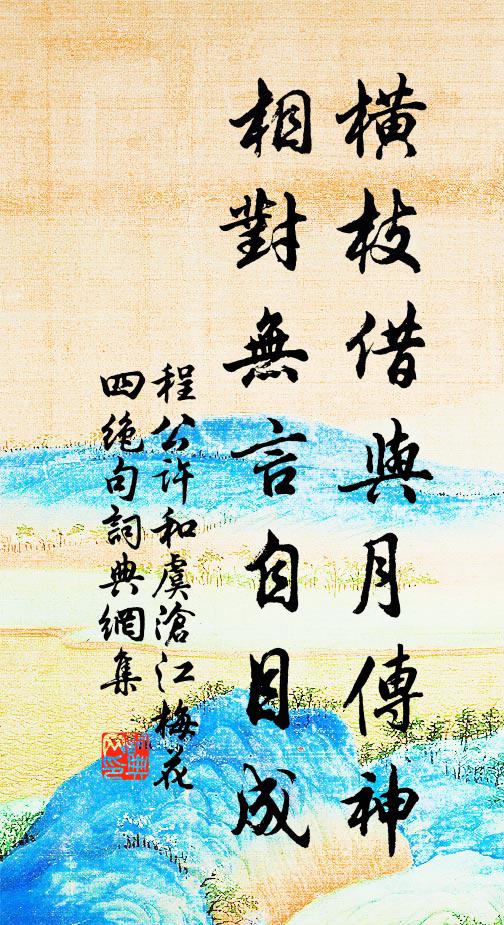 橫枝借與月傳神
相對無言自目成
程公許和虞滄江梅花
四絕句詞典網集